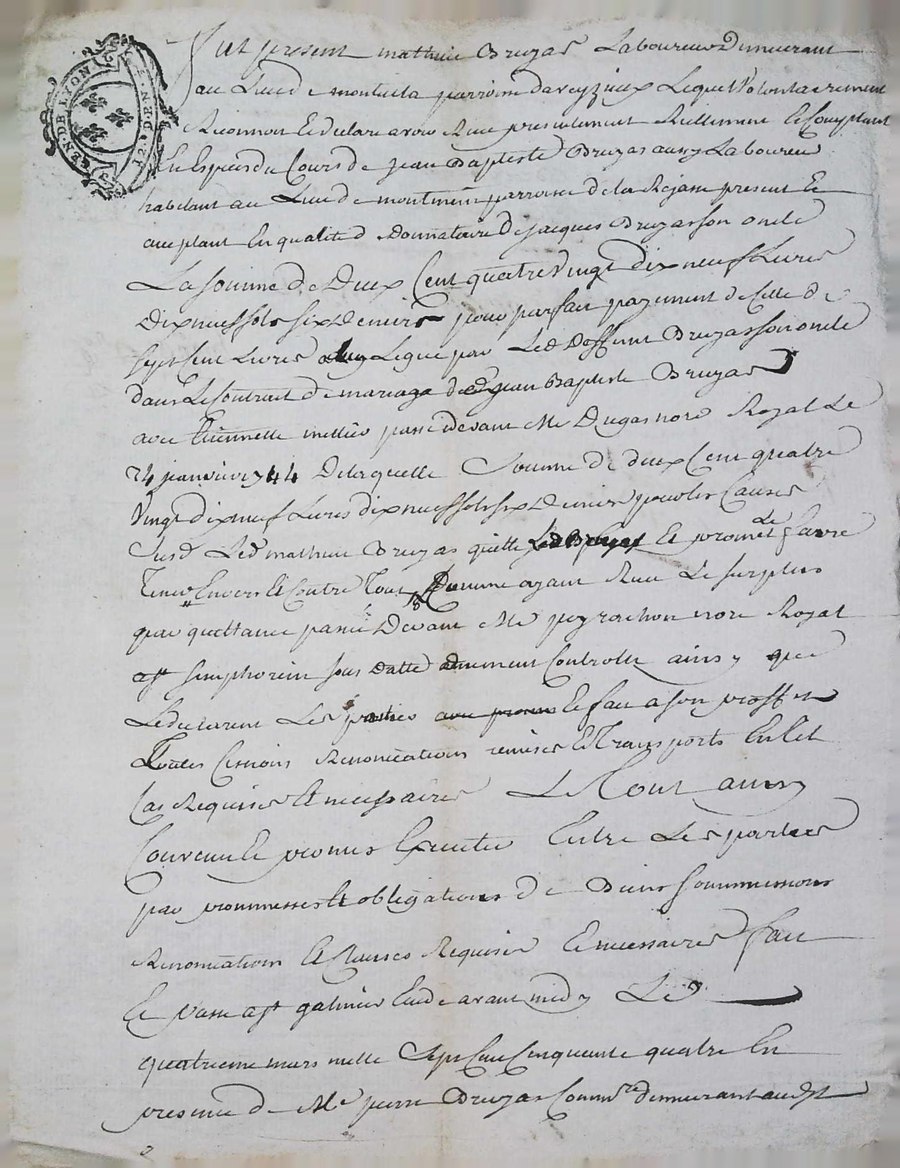 GEN. DE LYON
Fut present mathieu Bruyas Laboureur demeurant
au Lieu de montuela parroisse d'aveyzieux Lequel volontairement
Reconnoit Et declare avoir Reçu presentement Reellement Et Comptant
En Especes du Cours de jean Baptiste Bruyas aussy Laboureur
habitant au Lieu de parroisse de la Rajasse present Et
acceptant En qualité de Donnataire de jacques Bruyas son oncle
La somme de Deux Cent quatre Vingt dix neuf Livres
Dix neuf sols six Deniers pour parfait payement de Celle de
sept Cent Livres Legué par Led Deffunt Bruyas son oncle
dans Le Contrait de mariage de jean Baptiste Bruyas
avec Etiennette passé devant Me Dugas nore Royal Le
24 janvier 1744 De laquelle Somme de deux Cent quatre
Vingt dix neuf Livres dix neuf sols six Deniers pour les Causes
Susd Led mathieu Bruyas quitte Et promet Le faire
Tenir Envers Et Contre Tous Comme ayant Reçu Le surplus
par quittance passée Devant Me peyrachon nore Royal
a st simphorien sous datte Controllé ainsy que
Le declarent Les parties Et fait a son proffit
Toutes Cessions Renonciations remises Et Transports En tel
Cas Requises Et necessaires Le Tout ainsy
Convenu Et promis Executer Entre Les parties
par prommesses Et obligations de Biens soummissions
Renonciations Et Clauses Requises Et necessaires fait
Et passé a st galmier Etude avant midy Le
quatrieme mars mille Sept Cent Cinquante quatre En
presence de Me pierre Bruyas Commre demeurant aud st